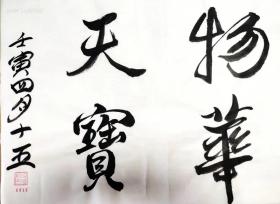 物華
天寶
壬寅四月十五